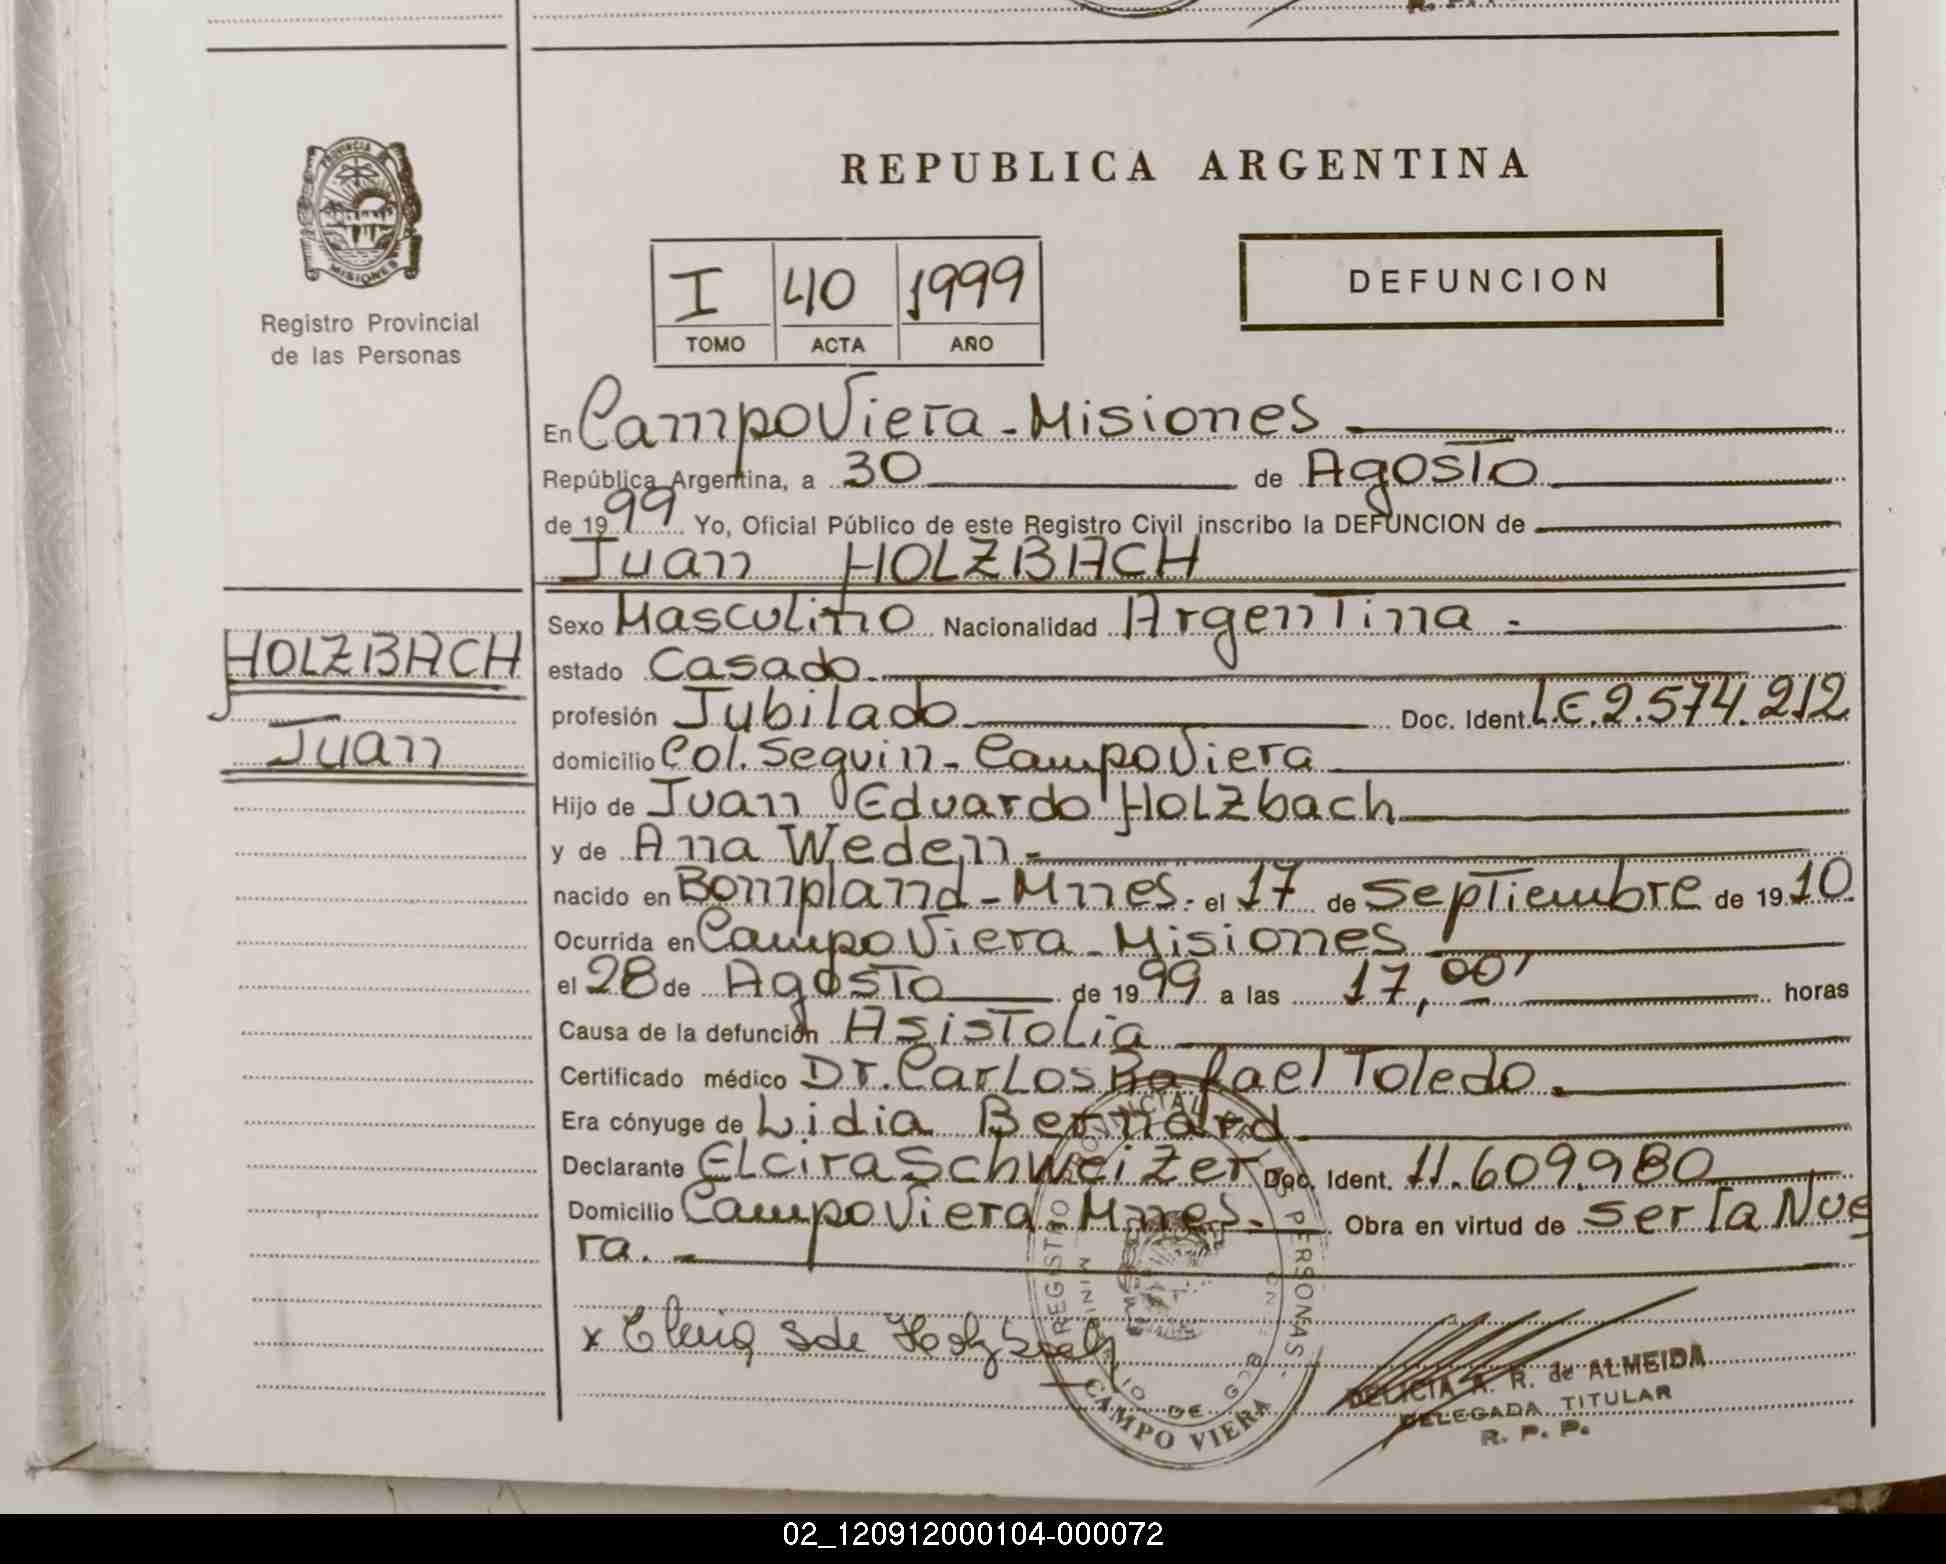 R. P. P.
PROVINCIA DE
MISIONES
Registro Provincial
de las Personas
REPUBLICA ARGENTINA
I 40 1999
TOMO ACTA AÑO
DEFUNCION
En Campo Viera - Misiones
República Argentina, a 30 de Agosto
de 1999 Yo, Oficial Público de este Registro Civil inscribo la DEFUNCION de
Juan HOLZBACH
HOLZBACH
Juan
Sexo Masculino Nacionalidad Argentina.-
estado Casado.
profesión Jubilado Doc. Ident. L.E. 2.574.212
domicilio Col. Seguin - Campo Viera
Hijo de Juan Eduardo Holzbach
y de Ana Weden.-
nacido en Bompland - Mnes. el 17 de Septiembre de 1910.
Ocurrida en Campo Viera - Misiones
el 28 de Agosto de 1999 a las 17,00' horas
Causa de la defunción Asistolia
Certificado médico Dr. Carlos Rafael Toledo.
Era cónyuge de Lidia Bernard
Declarante Elcira Schweizer Doc. Ident. 11.609.980
Domicilio Campo Viera Mnes.- Obra en virtud de ser la Nue
ra.-
x Elcira S de Holzbach
REGISTRO PROVINCIAL DE PERSONAS
CAMPO VIERA
DELICIA A. R. de ALMEIDA
DELEGADA TITULAR
R. P. P.
02_120912000104-000072